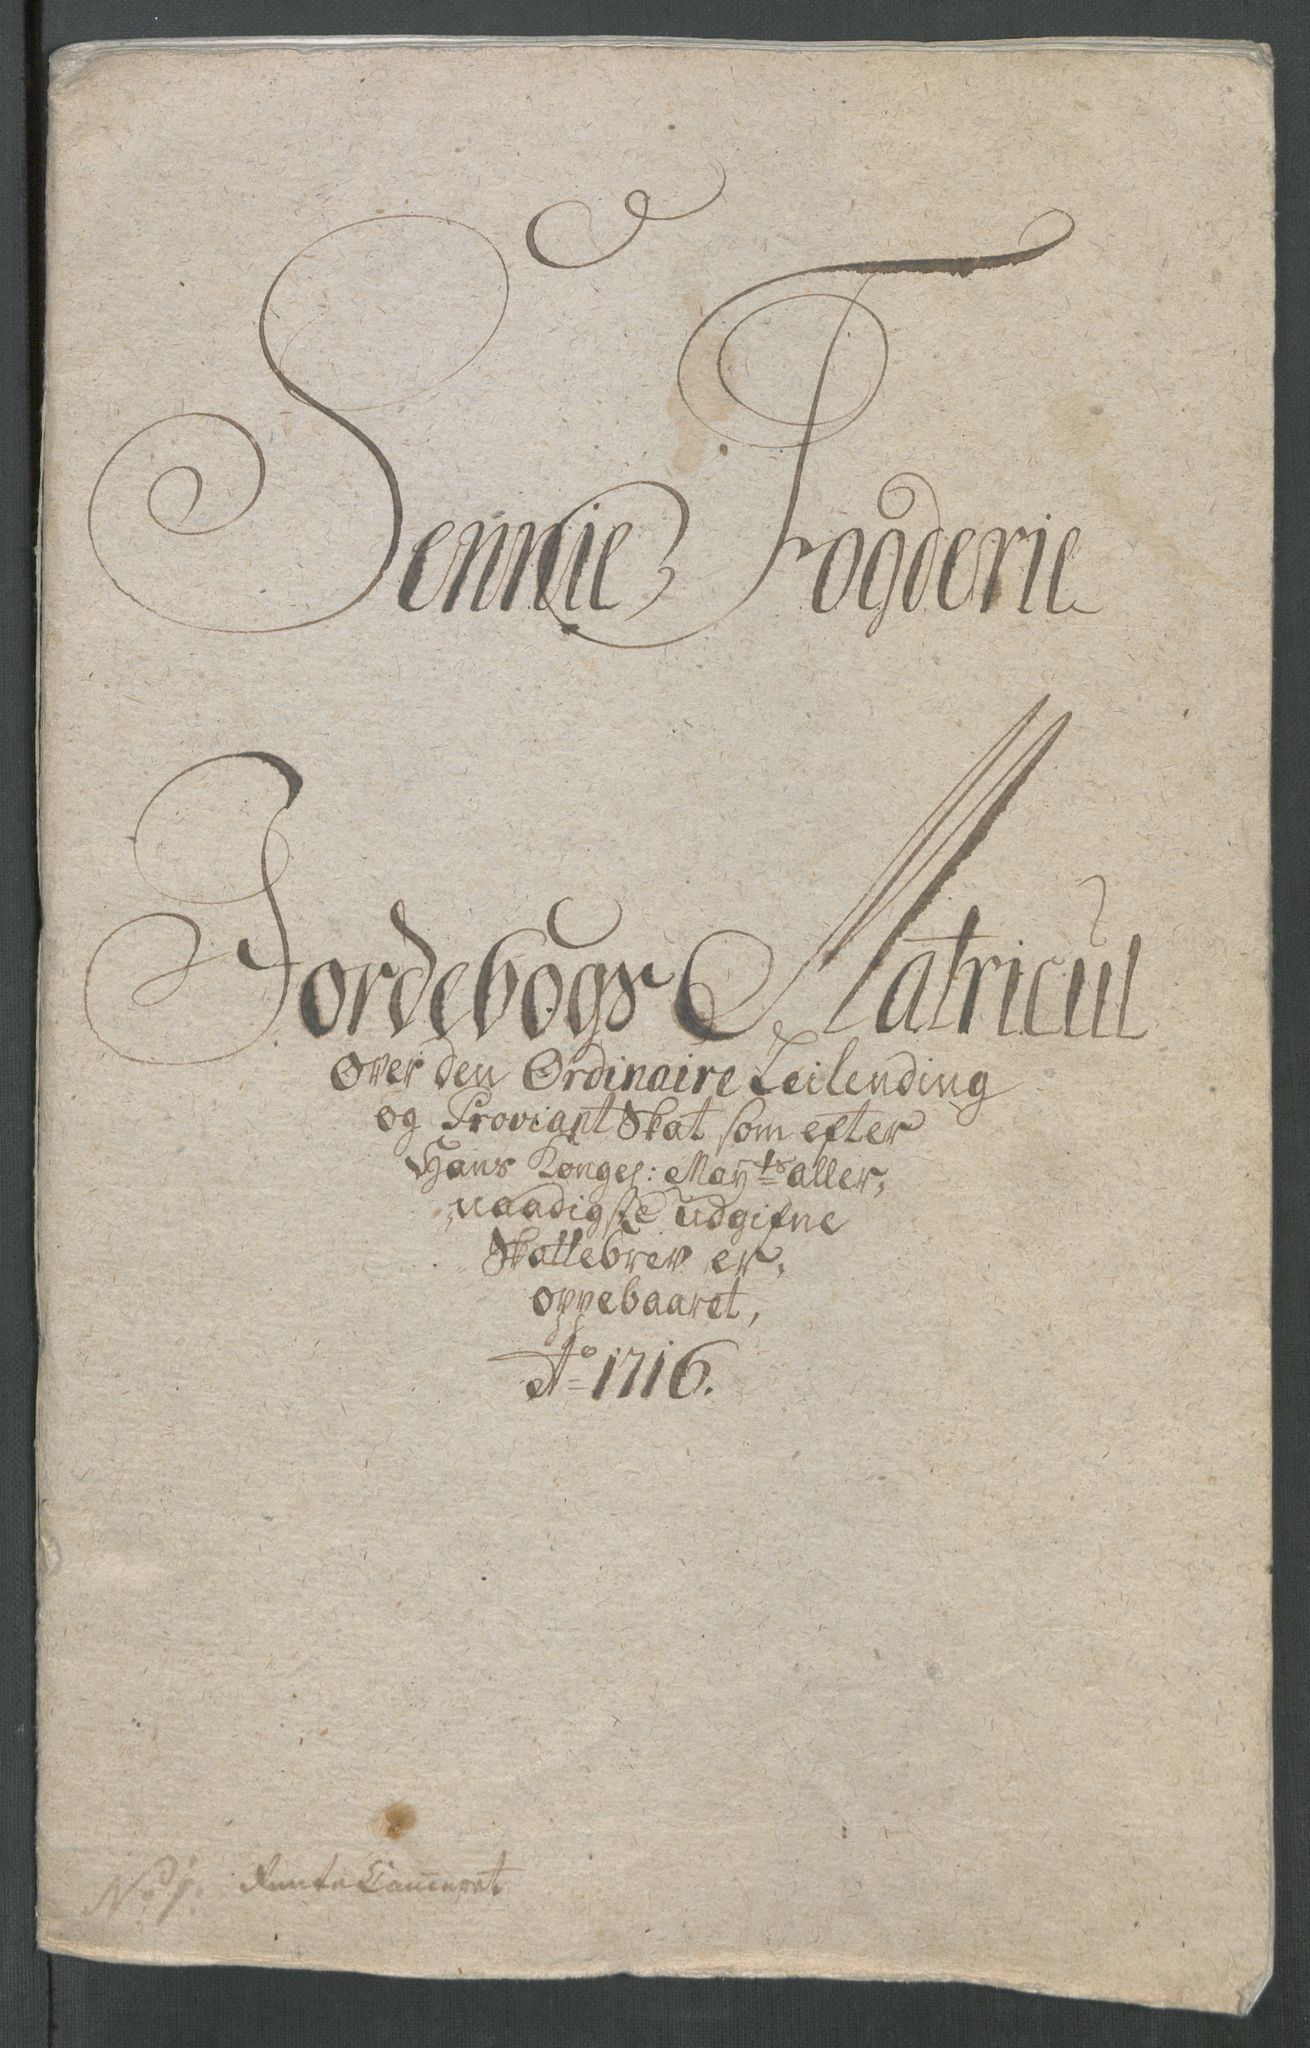 Sennie Fogderie
Jordebogs Matricul
Over den Ordinaire Leilending
og Proviant Skat som efter
Hans Kongel: May:ts aller,
naadigste udgifne
Skattebrev er,
oppebaaret,
Ao 1716.
No 1. Rente Cammeret